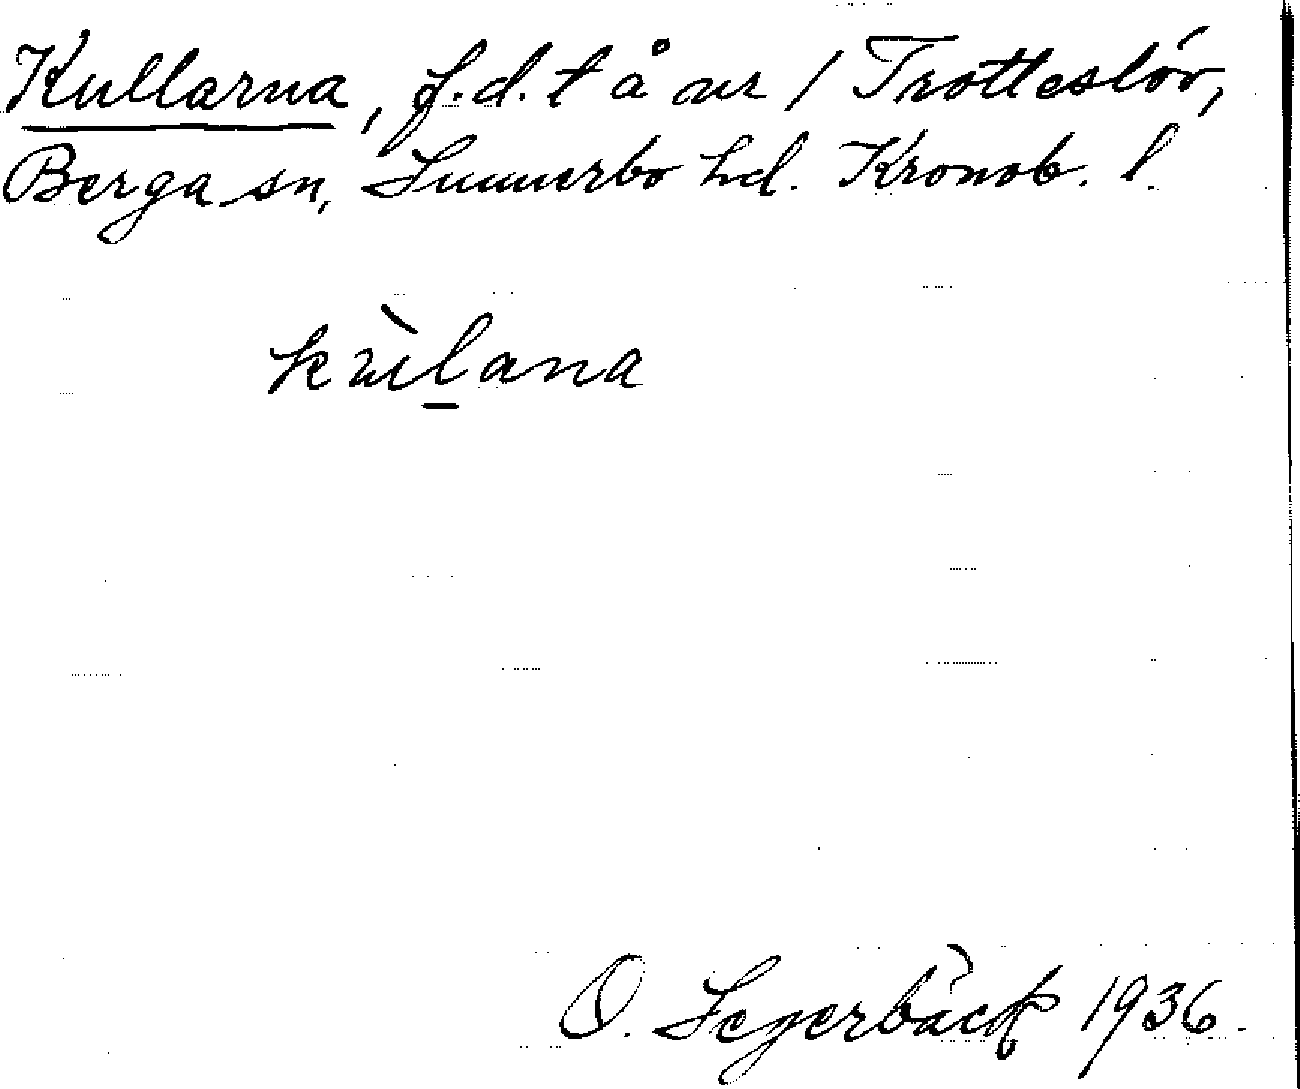 Kullarna, f.d. t å nr 1 Trotteslöv,
Berga sn, Sunnerbo hd. Kronob. l.
kùl̲ana
O. Segerbäck 1936.